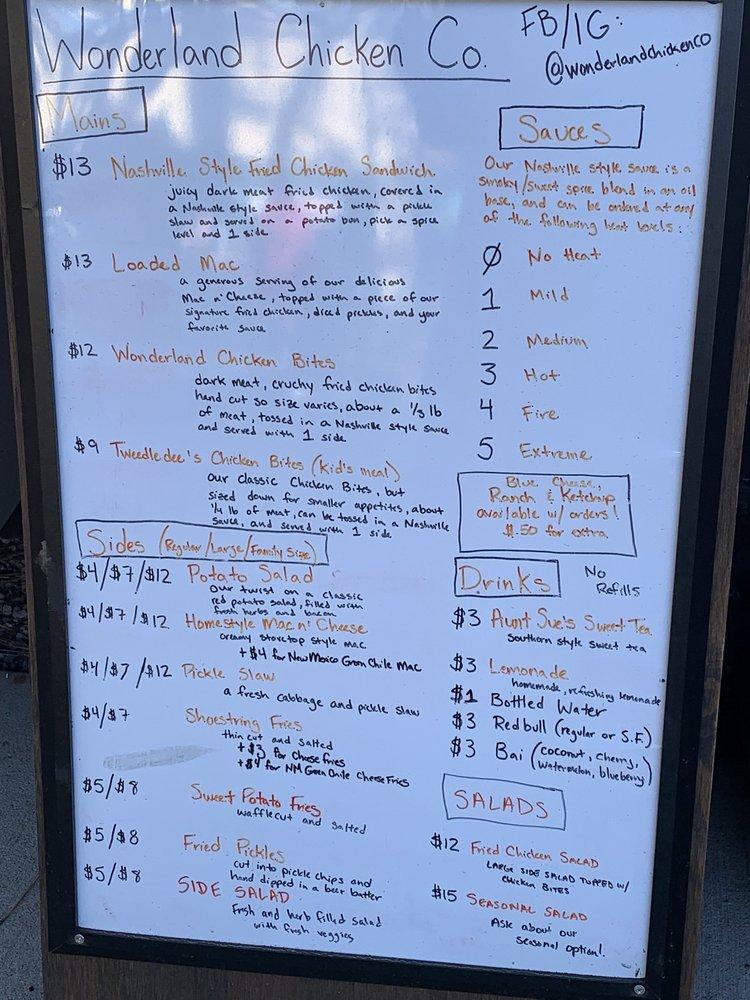 Wonderland Chicken Co.
FB/IG:
@wonderlandchickenco
Mains
$13 Nashville Style Fried Chicken Sandwich
juicy dark meat fried chicken, covered in
a Nashville style sauce, topped with a pickle
slaw and served on a potato bun, pick a spice
level and 1 side
$13 Loaded Mac
a generous serving of our delicious
Mac n' Cheese, topped with a piece of our
signature fried chicken, diced pickles, and your
favorite sauce
$12 Wonderland Chicken Bites
dark meat, cruchy fried chicken bites
hand cut so size varies, about a 1/3 lb
of meat, tossed in a Nashville style sauce
and served with 1 side
$9 Tweedledee's Chicken Bites (kid's meal)
our classic Chicken Bites, but
sized down for smaller appetites, about
1/4 lb of meat, can be tossed in a Nashville
sauce, and served with 1 side
Sides (Regular/Large/Family Size)
$4/$7/$12 Potato Salad
our twist on a classic
red potato salad, filled with
fresh herbs and bacon
$4/$7/$12 Homestyle Mac n' Cheese
creamy stovetop style mac
+$4 for New Mexico Green Chile Mac
$4/$7/$12 Pickle Slaw
a fresh cabbage and pickle slaw
$4/$7 Shoestring Fries
thin cut and salted
+$3 for Cheese fries
+$4 for NM Green Chile Cheese Fries
$5/$8 Sweet Potato Fries
wafflecut and salted
$5/$8 Fried Pickles
cut into pickle chips and
hand dipped in a beer batter
$5/$8 SIDE SALAD
Fresh and herb filled salad
with fresh veggies
Sauces
Our Nashville style sauce is a
smoky/sweet spice blend in an oil
base, and can be ordered at any
of the following heat levels:
0 No Heat
1 Mild
2 Medium
3 Hot
4 Fire
5 Extreme
Blue Cheese,
Ranch & Ketchup
available w/ orders!
$.50 for extra
Drinks
No
Refills
$3 Aunt Sue's Sweet Tea
Southern style sweet tea
$3 Lemonade
homemade, refreshing lemonade
$1 Bottled Water
$3 Redbull (regular or S.F.)
$3 Bai (coconut, cherry,
watermelon, blueberry)
SALADS
$12 Fried Chicken SALAD
LARGE SIDE SALAD TOPPED W/
CHICKEN BITES
$15 SEASONAL SALAD
Ask about our
Seasonal option!